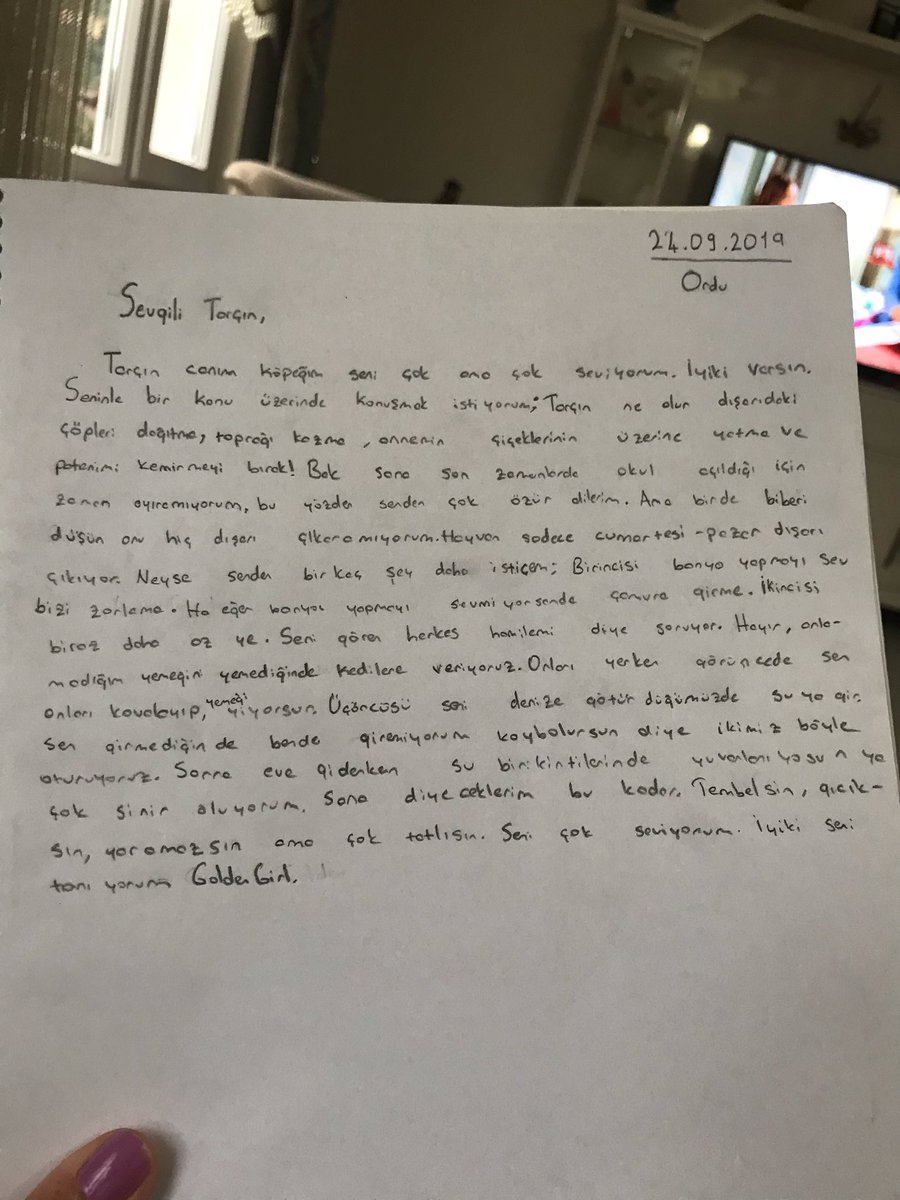 24.09.2019
Ordu
Sevgili Tarçın,
Tarçın canım köpeğim seni çok ama çok seviyorum. İyiki varsın.
Seninle bir konu üzerinde konuşmak istiyorum; Tarçın ne olur dışarıdaki
çöpleri dağıtma, toprağı kazma, annemin çiçeklerinin üzerine yatma ve
patenimi kemirmeyi bırak! Bak sana son zamanlarda okul açıldığı için
zaman ayıramıyorum, bu yüzden senden çok özür dilerim. Ama birde biberi
düşün onu hiç dışarı çıkaramıyorum. Hayvan sadece cumartesi-pazar dışarı
çıkıyor. Neyse senden birkaç şey daha istiçem; Birincisi banyo yapmayı sev
bizi zorlama. Ha eğer banyo yapmayı sevmiyorsanda çamura girme. İkincisi
biraz daha az ye. Seni gören herkes hamilemi diye soruyor. Hayır, anla-
madığım yemeğini yemediğinde kedilere veriyoruz. Onları yerken görüncede sen
onları kovalayıp, yemeği yiyorsun. Üçüncüsü seni denize götürdüğümüzde suya gir.
Sen girmediğinde bende giremiyorum kaybolursun diye ikimiz böyle
oturuyoruz. Sonra eve giderken su birikintilerinde yuvarlanıyosun ya
çok sinir oluyorum. Sana diyeceklerim bu kadar. Tembelsin, gıcık-
sın, yaramazsın ama çok tatlısın. Seni çok seviyorum. İyiki seni
tanıyorum GoldenGirl.